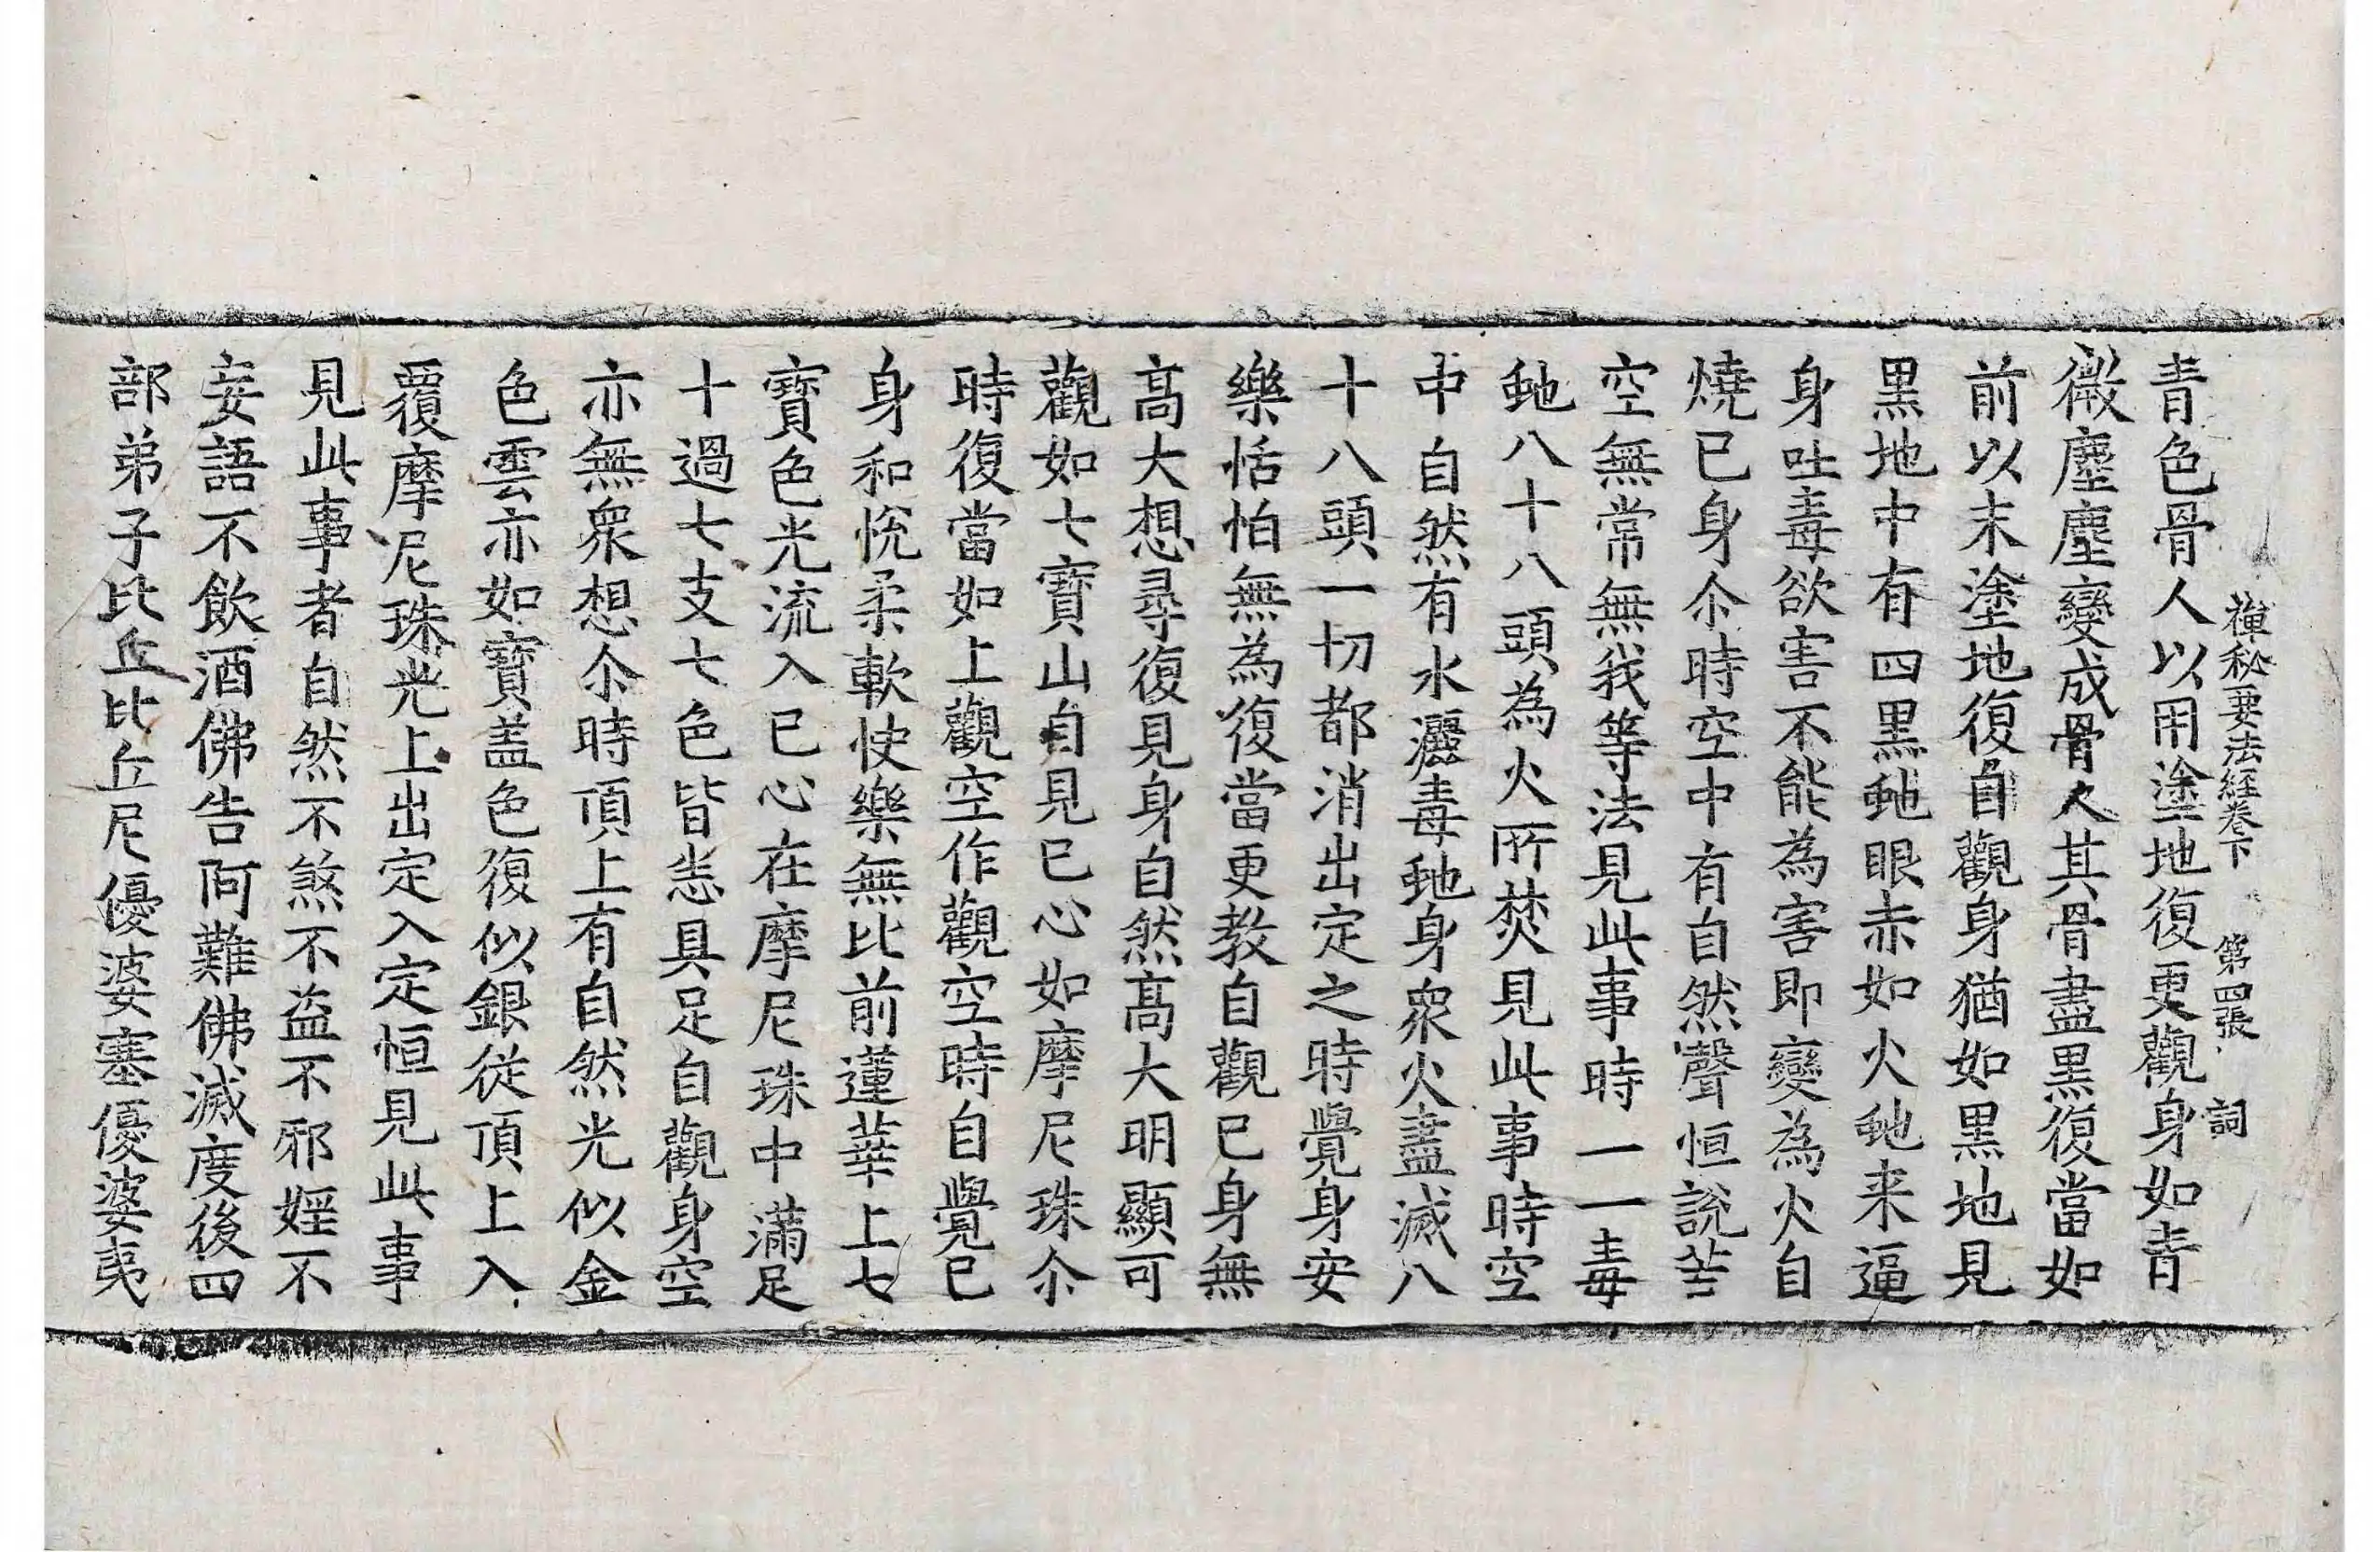 禅秘要法経巻下 第四張 詞
青色骨人以用塗地復更觀身如青
微塵塵變成骨人其骨盡黒復當如
前以末塗地復自觀身猶如黒地見
黒地中有四黒虵眼赤如火虵来逼
身吐毒欲害不能為害即變為火自
燒已身尒時空中有自然聲恒說苦
空無常無我等法見此事時一一毒
虵八十八頭為火所焚見此事時空
中自然有水灑毒虵身衆火盡滅八
十八頭一切都消出定之時覺身安
樂恬怕無為復當更教自觀已身無
髙大想尋復見身自然髙大明顯可
觀如七寶山自見已心如摩尼珠尒
時復當如上觀空作觀空時自覺已
身和悅柔軟快樂無比前蓮華上七
寶色光流入已心在摩尼珠中滿足
十過七支七色皆悉具足自觀身空
亦無衆想尒時頂上有自然光似金
色雲亦如寶盖色復似銀従頂上入
覆摩尼珠光上出定入定恒見此事
見此事者自然不煞不盗不邪婬不
妄語不飲酒佛告阿難佛滅度後四
部弟子比丘比丘尼優婆塞優婆夷